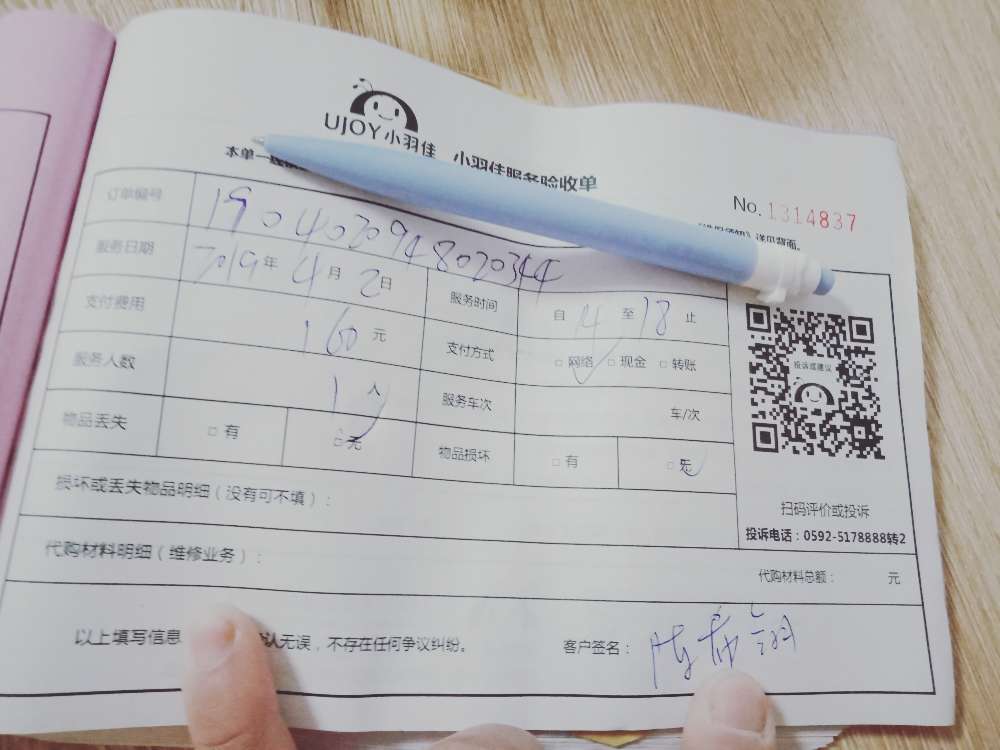 UJOY小羽佳 小羽佳服务验收单
本单一
No.1314837
详见背面。
订单编号 1904020948020344
服务日期 2019年4月2日 服务时间 自14至18止
支付费用 160元 支付方式 □网络 □现金 □转账
服务人数 1人 服务车次 车/次
物品丢失 □有 □无 物品损坏 □有 □无
投诉或建议
扫码评价或投诉
投诉电话:0592-5178888转2
损坏或丢失物品明细(没有可不填):
代购材料明细(维修业务): 代购材料总额: 元
以上填写信息 认无误,不存在任何争议纠纷。 客户签名: